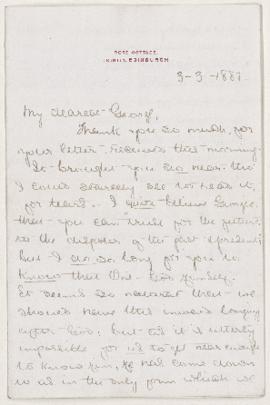 ROSE COTTAGE,
EDINBURGH
3-3-188
My dearest George,
Thank you so much for
your letter received this morning
It brought you so near tho'
I could scarcely see to read it
for tears. I quite believe
that you can trust for the future
to the of the past & present
but I do so long for you to
know that God himself.
It seems so that we
should have this longing
after God, but tis it is utterly
impossible for us to get near enough
to know Him, He has come down
to us in the only form which we